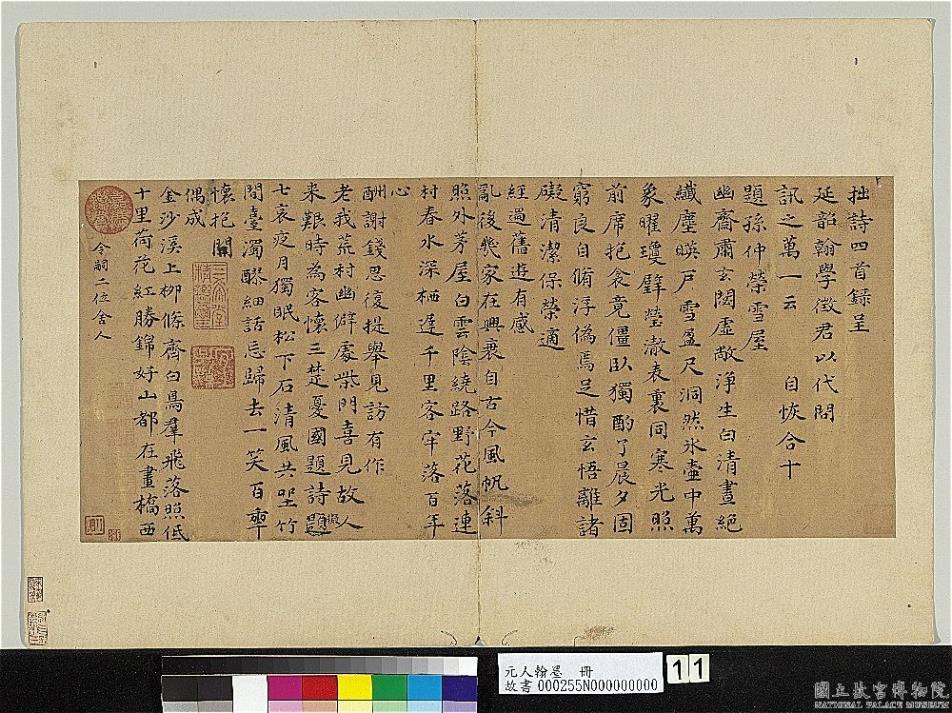 拙詩四首録呈
延韶翰學徵君以代問
訊之萬一云 自恢合十
題孫仲榮雪屋
幽齋肅玄闥虛敞淨生白清晝絕
纖塵暎戸雪盈尺洞然氷壺中萬
象曜瓊璧瑩澈表裏同寒光照
前席抱衾竟僵臥獨酌了晨夕固
窮良自脩浮偽焉足惜玄悟離諸
礙清潔保榮適
經過舊遊有感
亂後幾家在興衰自古今風帆斜
照外茅屋白雲陰繞路野花落連
村春水深栖遲千里客牢落百年
心
酬謝錢思復提舉見訪有作
老我荒村幽僻處柴門喜見故人
来艱時為客懷三楚憂國題詩
七哀夜月獨眠松下石清風共坐竹
間臺濁醪細話忘歸去一笑百零
懷抱開
偶成
金沙溪上栁條齊白鳥羣飛落照低
十里荷花紅勝錦好山都在畫橋西
令嗣二位舍人
元人翰墨 冊
故書 000255N000000000
11
國立故宮博物院
NATIONAL PALACE MUSEUM